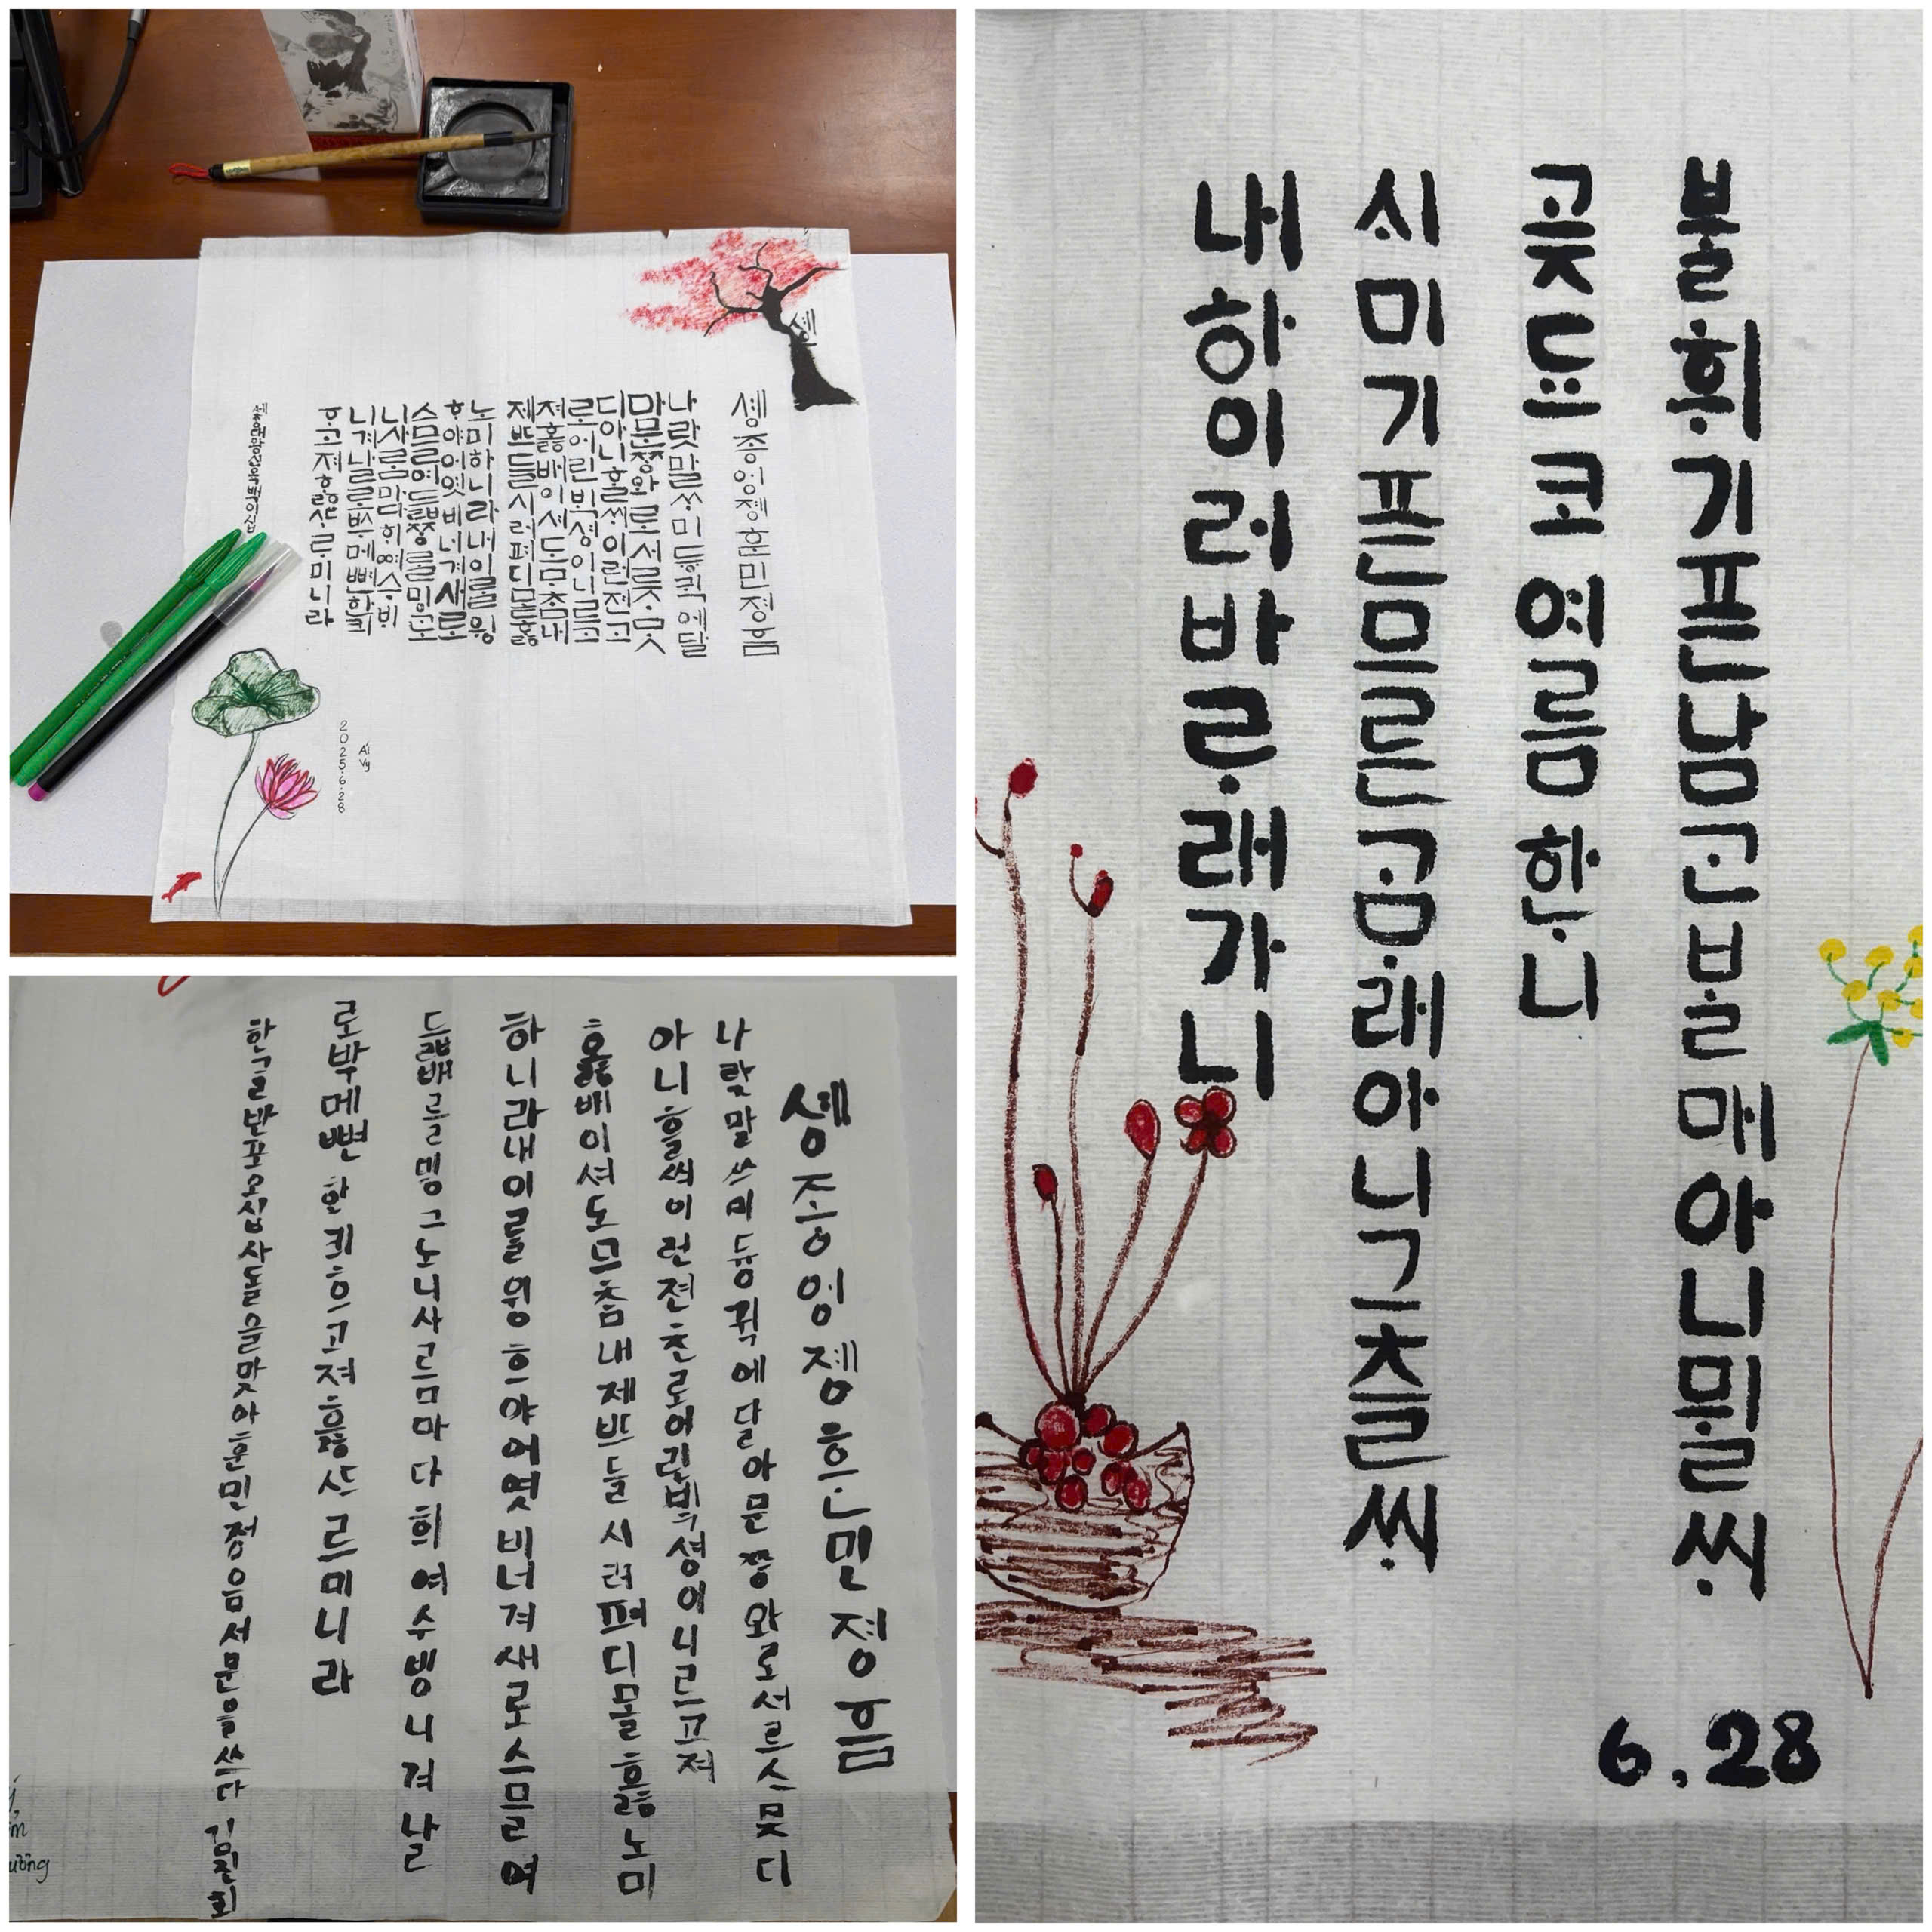 세종어졩훈민졍흠
나랏말ᄊᆞ미듕귁에달
ᄍᆞᆼ와로서르ᄉᆞᄆᆞᆺ
디아니ᄒᆞᆯᄊᆡ이런젼ᄎᆞ
로어린ᄇᆡᆨ셩이니르고
져호ᇙ배이셔도ᄆᆞᄎᆞᆷ내
제ᄠᅳ들시러펴디몯ᄒᆞᇙ
노미하니라내이ᄅᆞᆯ윙
ᄒᆞ야어엿비너겨새로
스믈여듧ᄍᆞᆼᄅᆞᆯ
니사ᄅᆞᆷ마다ᄒᆡᅇᅧ수ᄫᅵ
니겨날로ᄡᅮ메뼌한킈
ᄒᆞ고져ᄒᆞᇙᄯᆞᄅᆞ미니라
2025.6.28
Ái Vy
솅종엉졩훈민졍흠
나랏말ᄊᆞ미듕귁에달아문ᄍᆞᆼ와로서르ᄉᆞᄆᆞᆺ디
아니ᄒᆞᆯᄊᆡ이런젼ᄎᆞ로어린ᄇᆡᆨ셩이니르고져
호ᇙ배이셔도ᄆᆞᄎᆞᆷ내제ᄠᅳ들시러펴디몯ᄒᆞᇙ노미
하니라내이ᄅᆞᆯ윙ᄒᆞ야어엿비너겨새로스믈여
듧ᄍᆞᆼᄅᆞᆯᄆᆡᇰᄀᆞ노니사ᄅᆞᆷ마다ᄒᆡᅇᅧ수ᄫᅵ니겨날
로ᄡᅮ메뼌한킈ᄒᆞ고져ᄒᆞᇙᄯᆞᄅᆞ미니라
한글반포오십사돌을맞아훈민정음서문을쓰다
불휘기픈남ᄀᆞᆫᄇᆞᄅᆞ매아니뮐ᄊᆡ
곶됴코여름하ᄂᆞ니
ᄉᆡ미기픈므른ᄀᆞᄆᆞ래아니그츨ᄊᆡ
내하이러바ᄅᆞ래가니
6.28